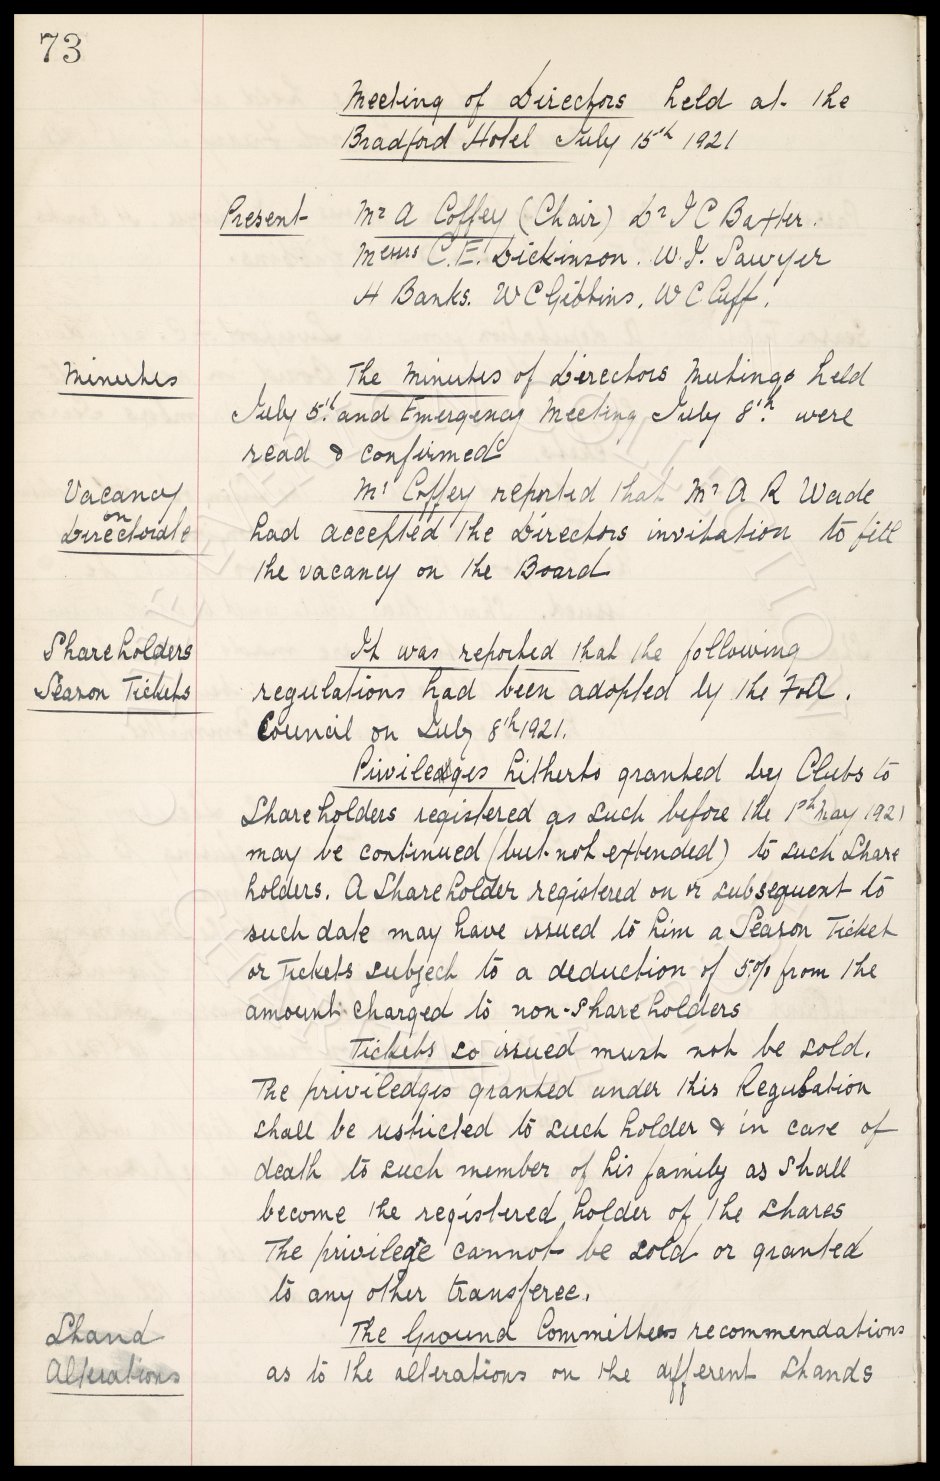 73
Meeting of Directors held at the
Bradford Hotel July 15th 1921
Present Mr A Coffey (Chair) Dr J C Baxter.
Messrs C. E. Dickinson. W. J. Sawyer
H Banks. W C Gibbins. W C Cuff.
Minutes The Minutes of Directors Meetings held
July 5th. and Emergency Meeting July 8th. were
read & confirmed
Vacancy Mr Coffey reported that Mr A R Wade
on
Directorate had accepted the Directors invitation to fill
the vacancy on the Board
Shareholders It was reported that the following
Season Tickets regulations had been adopted by the F.A.
Council on July 8th 1921.
Priviledges hitherto granted by Clubs to
Shareholders registered as such before the 1st May 1921
may be continued (but not extended) to such Share
holders. A Shareholder registered on or subsequent to
such date may have issued to him a Season Ticket
or Tickets subject to a deduction of 5% from the
amount charged to non-shareholders
Tickets so issued must not be sold.
The priviledges granted under this Regulation
shall be restricted to such holder & in case of
death to such member of his family as shall
become the registered holder of the shares
The privilege cannot be sold or granted
to any other transferee.
Stand The Ground Committees recommendations
Alterations as to the alterations on the different Stands